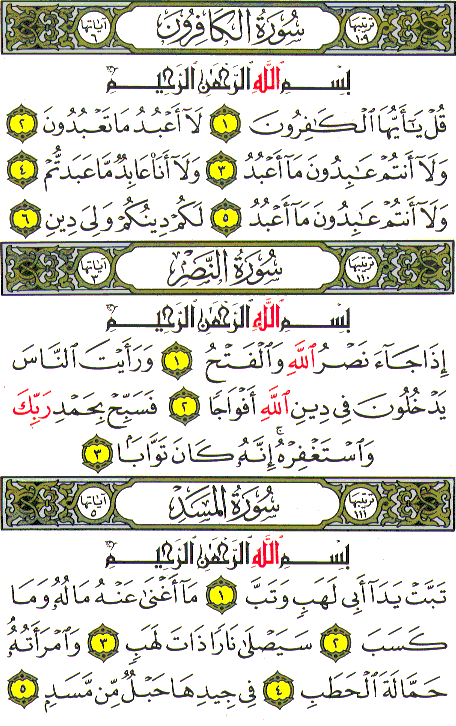 ترتيبها ١٠٩ سُورَةُ الْكَافِرُونَ آياتها ٦
بِسْمِ اللَّهِ الرَّحْمَٰنِ الرَّحِيمِ
قُلْ يَٰٓأَيُّهَا ٱلْكَٰفِرُونَ ١ لَآ أَعْبُدُ مَا تَعْبُدُونَ ٢
وَلَآ أَنتُمْ عَٰبِدُونَ مَآ أَعْبُدُ ٣ وَلَآ أَنَا۠ عَابِدٌ مَّا عَبَدتُّمْ ٤
وَلَآ أَنتُمْ عَٰبِدُونَ مَآ أَعْبُدُ ٥ لَكُمْ دِينُكُمْ وَلِىَ دِينِ ٦
ترتيبها ١١٠ سُورَةُ النَّصْرِ آياتها ٣
بِسْمِ اللَّهِ الرَّحْمَٰنِ الرَّحِيمِ
إِذَا جَآءَ نَصْرُ ٱللَّهِ وَٱلْفَتْحُ ١ وَرَأَيْتَ ٱلنَّاسَ
يَدْخُلُونَ فِى دِينِ ٱللَّهِ أَفْوَاجًا ٢ فَسَبِّحْ بِحَمْدِ رَبِّكَ
وَٱسْتَغْفِرْهُ ۚ إِنَّهُۥ كَانَ تَوَّابًۢا ٣
ترتيبها ١١١ سُورَةُ الْمَسَدِ آياتها ٥
بِسْمِ اللَّهِ الرَّحْمَٰنِ الرَّحِيمِ
تَبَّتْ يَدَآ أَبِى لَهَبٍ وَتَبَّ ١ مَآ أَغْنَىٰ عَنْهُ مَالُهُۥ وَمَا
كَسَبَ ٢ سَيَصْلَىٰ نَارًا ذَاتَ لَهَبٍ ٣ وَٱمْرَأَتُهُۥ
حَمَّالَةَ ٱلْحَطَبِ ٤ فِى جِيدِهَا حَبْلٌ مِّن مَّسَدٍۭ ٥